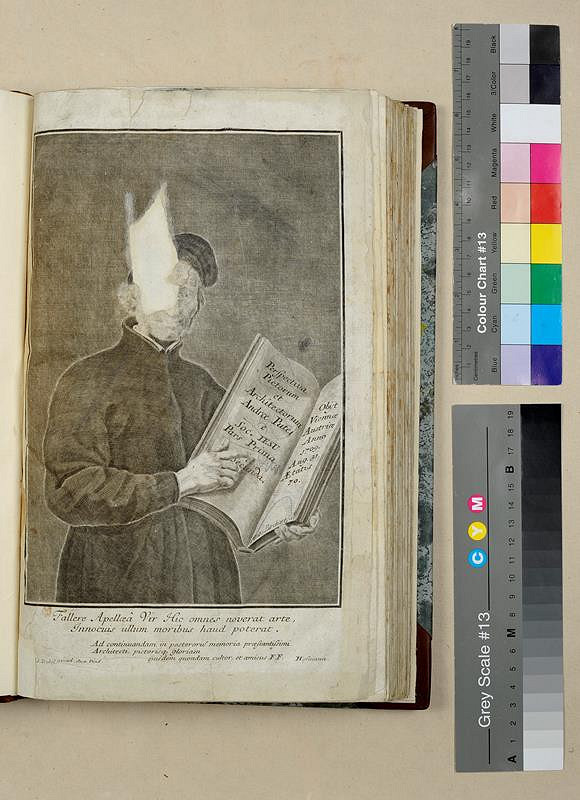 Perspectiva
Pictorum
et
Architectorum
Andreæ Putei
è
Soc. IESU
Pars Prima
Obÿt
Viennæ
Austriæ
Anno
1709.
Aug. 31
Ætatis
70.
Fallere Apellæâ Vir Hic omnes noverat arte,
Innocuis ullum moribus haud poterat.
Ad continuandam in posterorũ memoria præstantissimi
Architecti, pictorisq; gloriam
ejusdem quondam cultor, et amicus F.F.
Colour Chart #13
Blue
Cyan
Green
Yellow
Red
Magenta
White
3/Color
Black
Centimetres
Grey Scale #13
C Y M
A 1 2 3 4 5 6 M 8 9 10 11 12 13 14 15 B 17 18 19